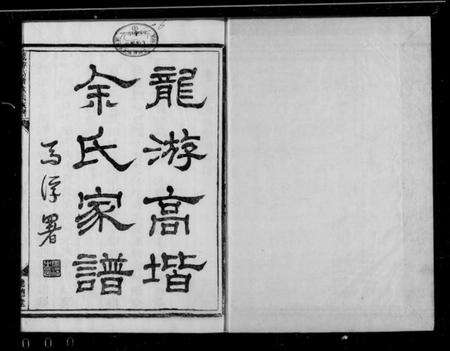 龍游高堦
余氏家譜
馬浮署
000